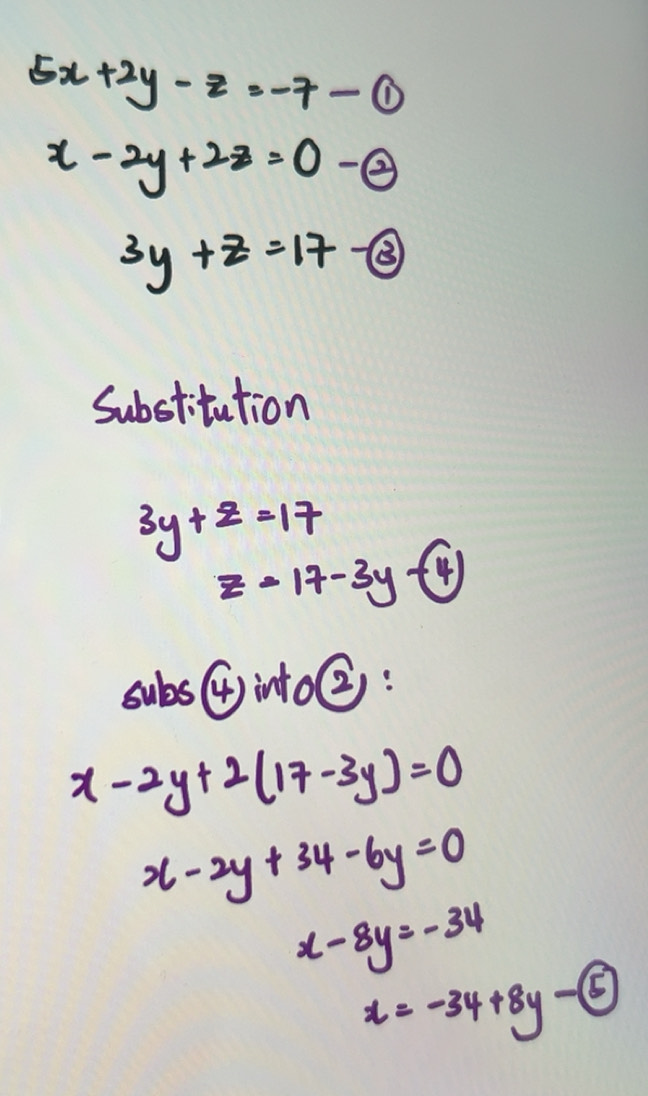 5x + 2y - z = -7 - ①
x - 2y + 2z = 0 - ②
3y + z = 17 - ③
Substitution
3y + z = 17
z = 17 - 3y - ④
subs ④ into ② :
x - 2y + 2(17 - 3y) = 0
x - 2y + 34 - 6y = 0
x - 8y = -34
x = -34 + 8y - ⑤